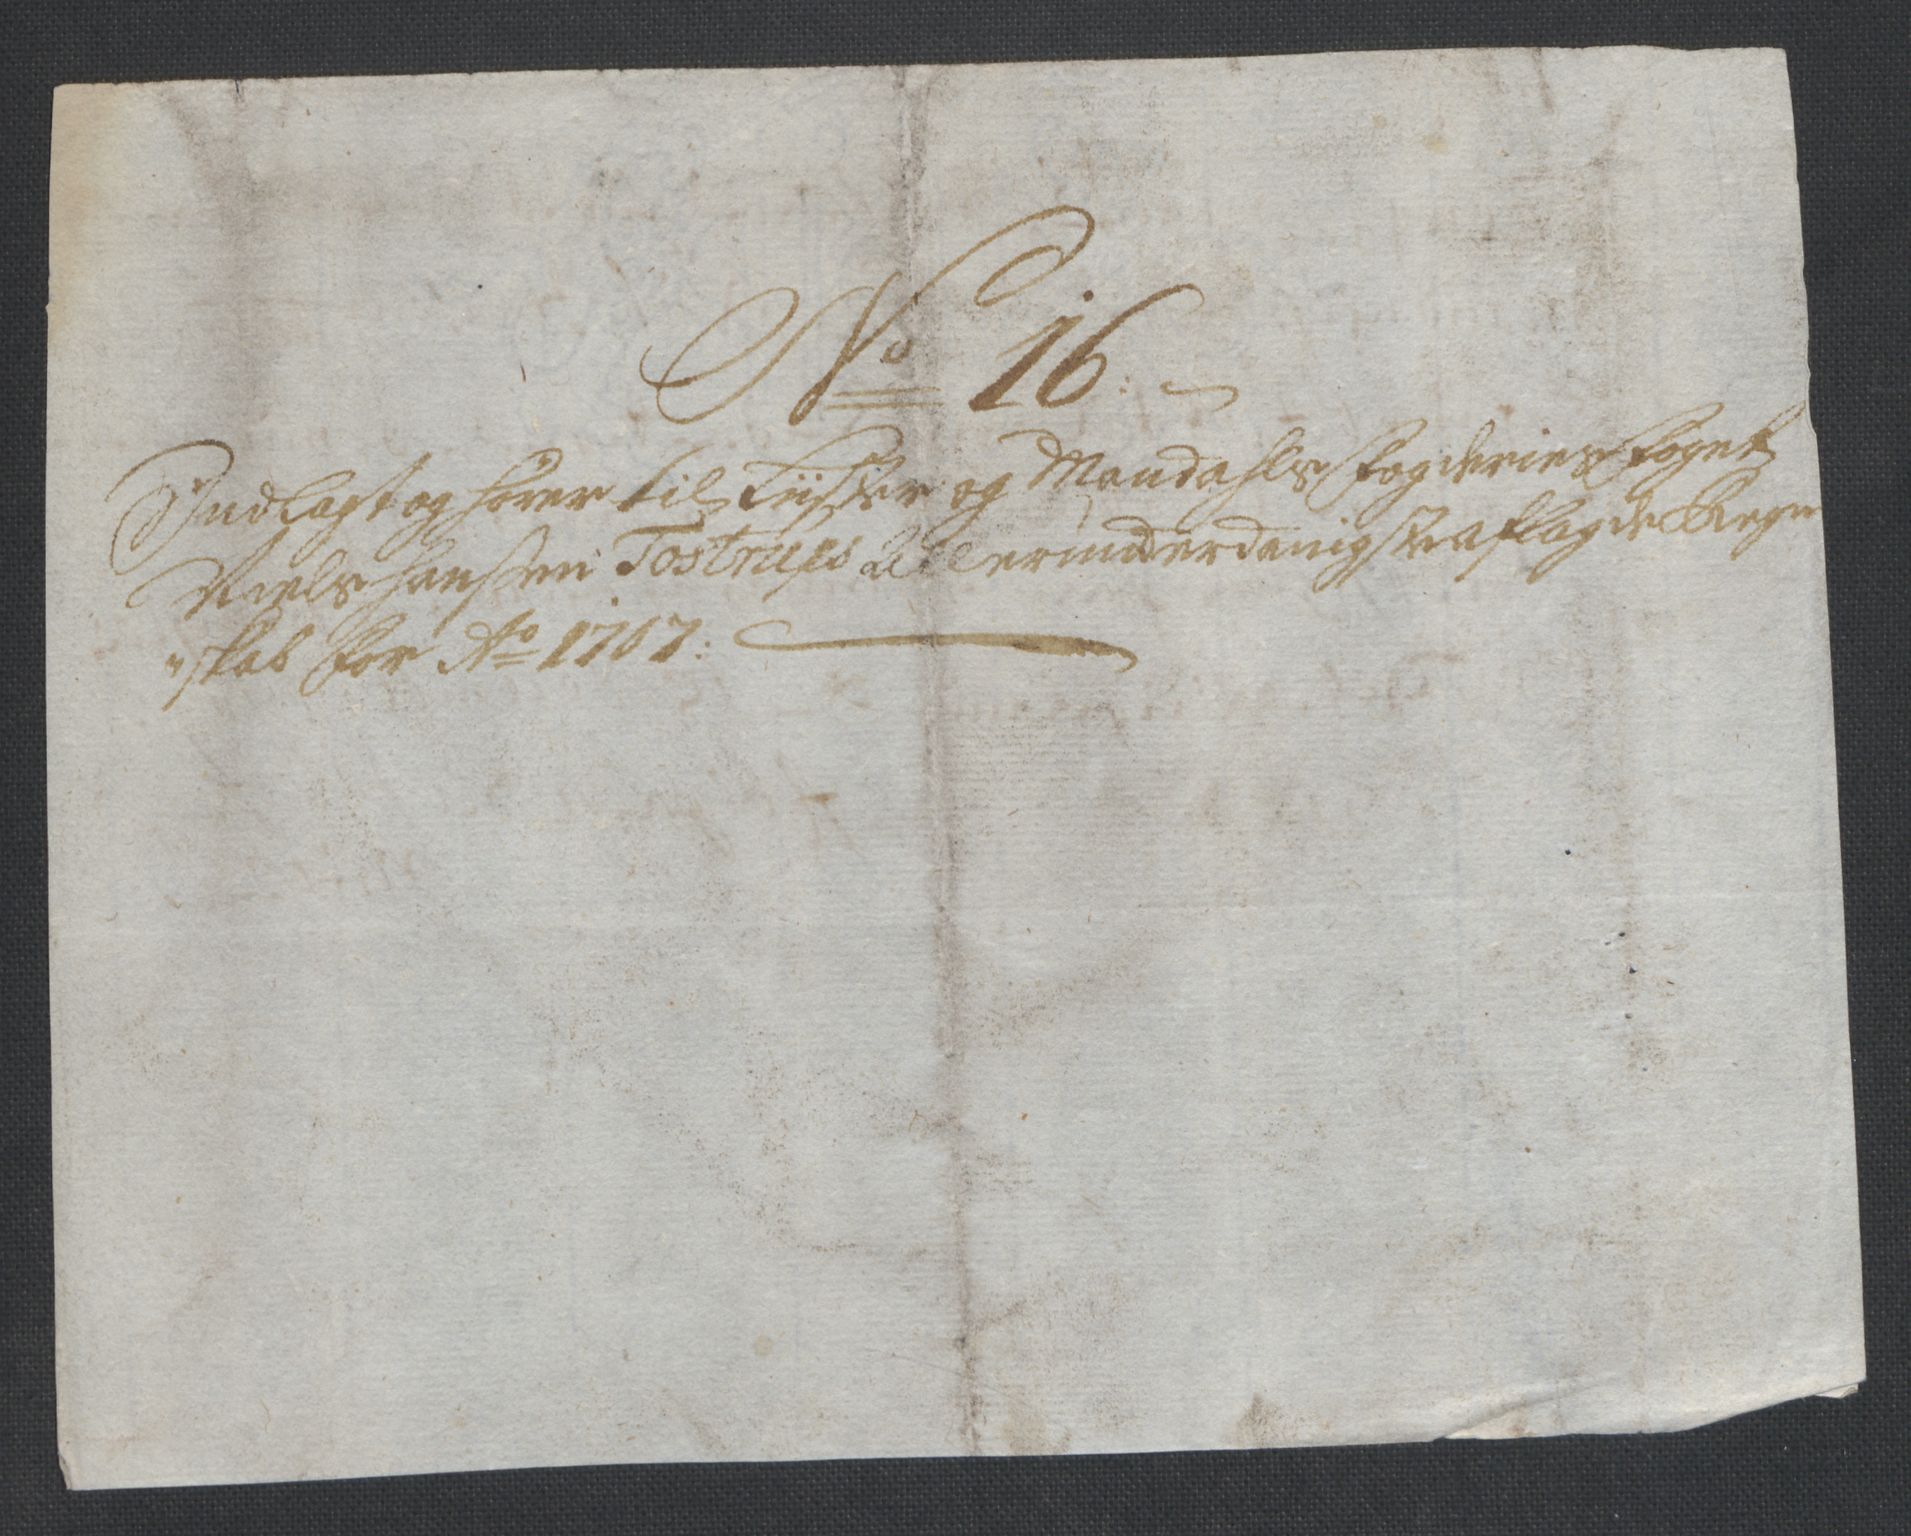 No 16:
Indlagt og hører til Lister og Mandahls Fogderies Foget
Niels Hansen Tostrups allerunderdanigste aflagde Regn
"skab for Ao 1707: